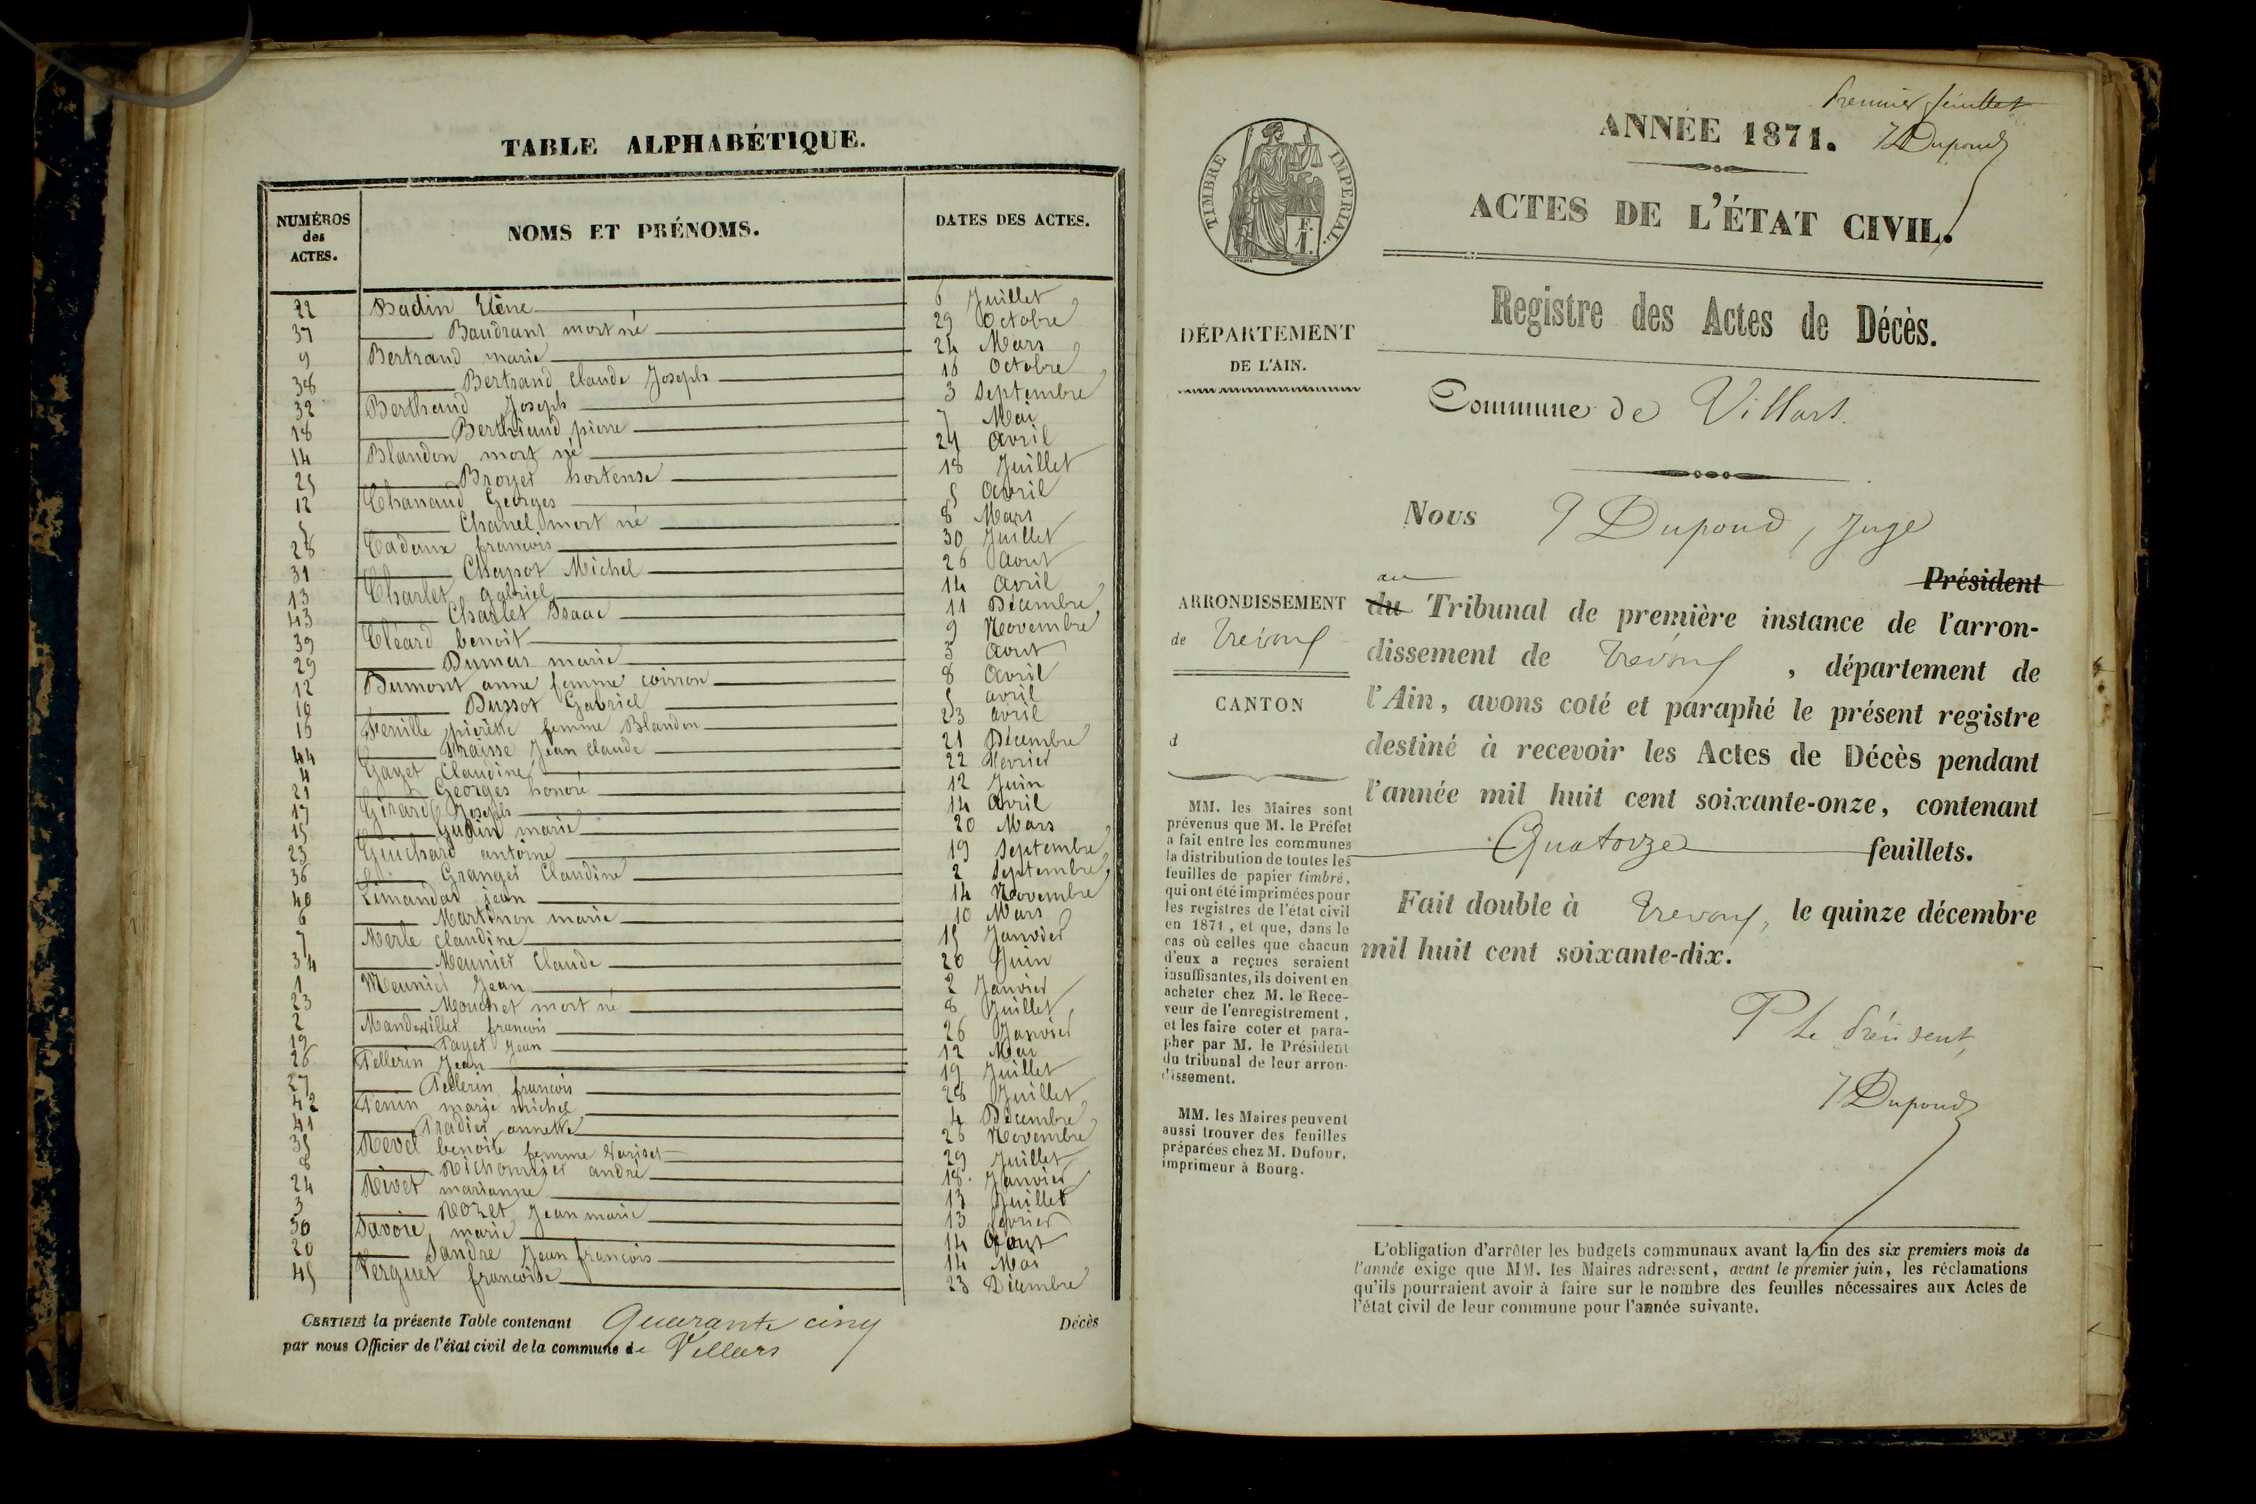 TABLE ALPHABÉTIQUE.
NUMÉROS des ACTES. NOMS ET PRÉNOMS. DATES DES ACTES.
22 Badin Elène 6 Juillet
37 Baudrant mort né 29 Octobre
9 Bertrand marie 24 Mars
38 Bertrand Claude Joseph 18 Octobre
32 Berthaud Joseph 3 Septembre
18 Berthiaud pierre 7 Mai
14 Blandon mort né 24 Avril
25 Broyer hortense 18 Juillet
12 Chanaud Georges 5 Avril
5 Chanel mort né 8 Mars
28 Cadeux francois 30 Juillet
31 Chapot Michel 26 Aout
13 Charlet gabriel 14 Avril
43 Charlet Isaac 11 Décembre
39 Cléard benoit 9 Novembre
29 Dumas marie 3 Aout
12 Dumont anne femme coirron 8 Avril
10 Dussot Gabriel 5 avril
16 femme Blandon 23 avril
44 Jean Claude 21 Décembre
4 Gayet Claudine 22 Février
21 Georges honoré 12 Juin
17 Girard Joseph 14 Avril
15 marie 20 Mars
23 Guichard antoine 19 Septembre
36 Granger Claudine 2 Septembre
40 Limandas jean 14 Novembre
6 Martinon marie 10 Mars
7 Merle claudine 15 Janvier
34 Meunier Claude 20 Juin
1 Meunier Jean 2 Janvier
23 Mouchet mort né 8 Juillet
2 francois 26 Janvier
19 Payet Jean 12 Mai
26 Pellerin Jean 19 Juillet
27 Pellerin francois 28 Juillet
42 marie michel 4 Décembre
41 Pradier annette 26 Novembre
35 Revel benoite femme 29 Juillet
8 Richonnier andré 18 Janvier
24 Rivet marianne 13 Juillet
3 Rozet Jean marie 13 février
30 Savoie marie 14 Aout
20 Sandre Jean francois 14 Mai
45 Verguet francoise 23 Décembre
CERTIFIÉ la présente Table contenant Quarante cinq Décès
par nous Officier de l'état civil de la commune de Villars
Premier feuillet
ANNÉE 1871. Dupond
TIMBRE IMPÉRIAL.
F. 1.
ACTES DE L'ÉTAT CIVIL.
Registre des Actes de Décès.
DÉPARTEMENT
DE L'AIN.
Commune de Villars.
Nous Dupond, Juge
Président
au
du Tribunal de première instance de l'arron-
dissement de Trévoux, département de
l'Ain, avons coté et paraphé le présent registre
destiné à recevoir les Actes de Décès pendant
l'année mil huit cent soixante-onze, contenant
Quatorze feuillets.
Fait double à Trévoux, le quinze décembre
mil huit cent soixante-dix.
P le Président,
Dupond
ARRONDISSEMENT
de Trévoux
CANTON
d
MM. les Maires sont
prévenus que M. le Préfet
a fait entre les communes
la distribution de toutes les
feuilles de papier timbré,
qui ont été imprimées pour
les registres de l'état civil
en 1871, et que, dans le
cas où celles que chacun
d'eux a reçues seraient
insuffisantes, ils doivent en
acheter chez M. le Rece-
veur de l'enregistrement,
et les faire coter et para-
pher par M. le Président
du tribunal de leur arron-
dissement.
MM. les Maires peuvent
aussi trouver des feuilles
préparées chez M. Dufour,
imprimeur à Bourg.
L'obligation d'arrêter les budgets communaux avant la fin des six premiers mois de
l'année exige que MM. les Maires adressent, avant le premier juin, les réclamations
qu'ils pourraient avoir à faire sur le nombre des feuilles nécessaires aux Actes de
l'état civil de leur commune pour l'année suivante.